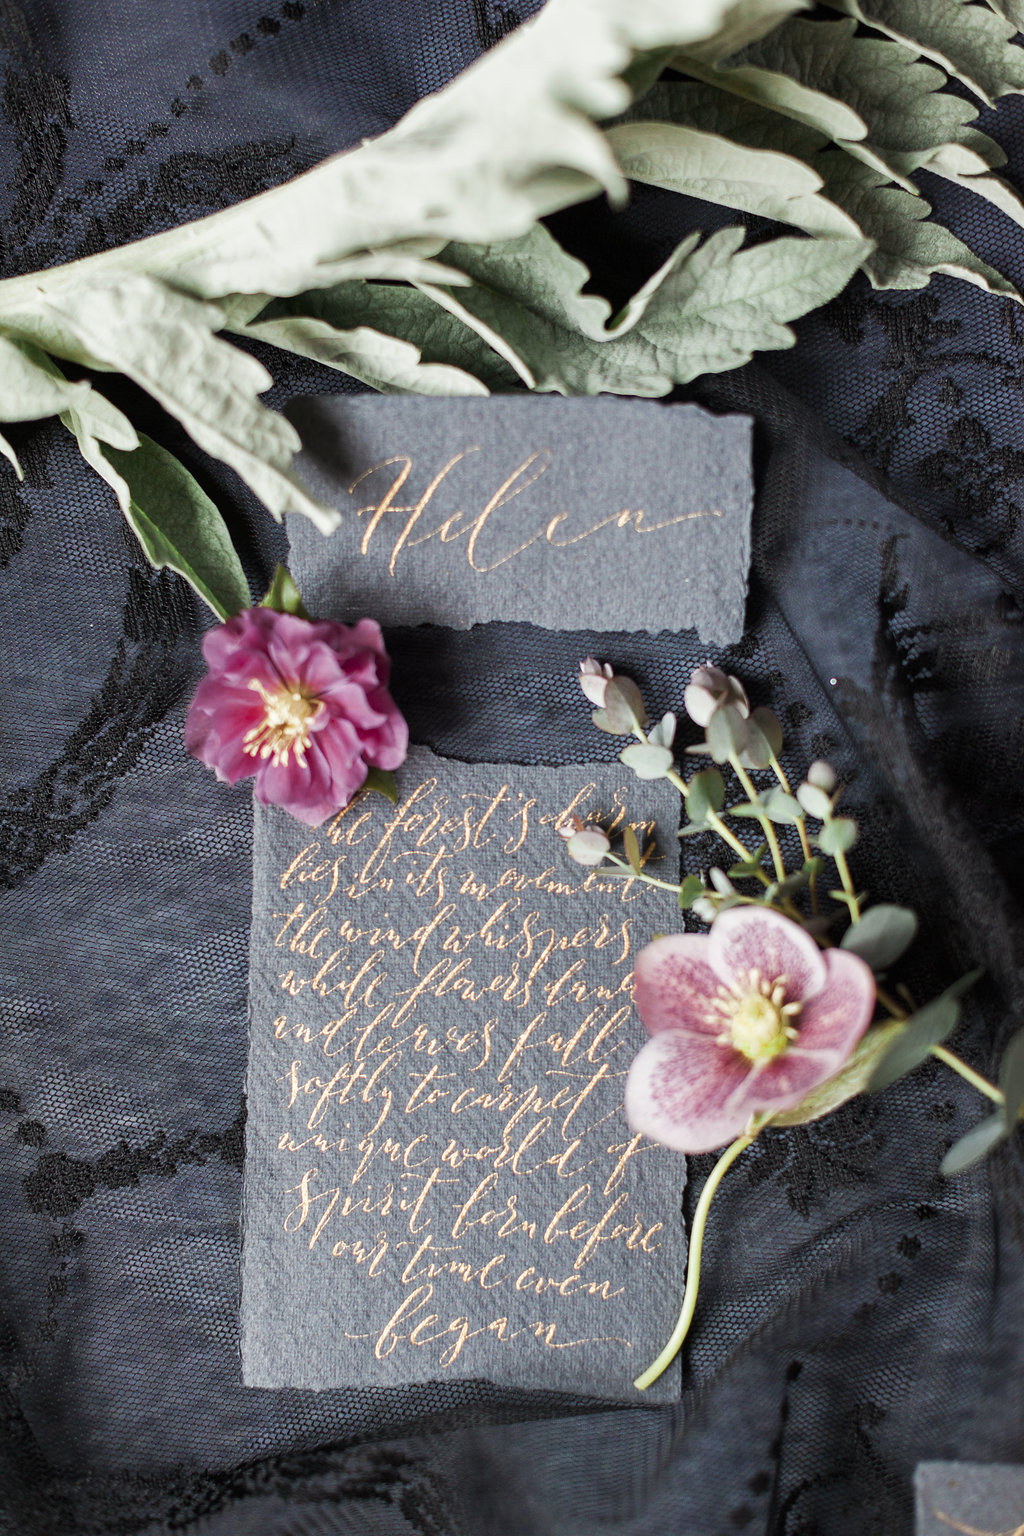 Helen
The forest's charm
lies in its movement.
the wind whispers
while flowers dance
and leaves fall
softly to carpet
unique world of
spirit born before
our time even
began